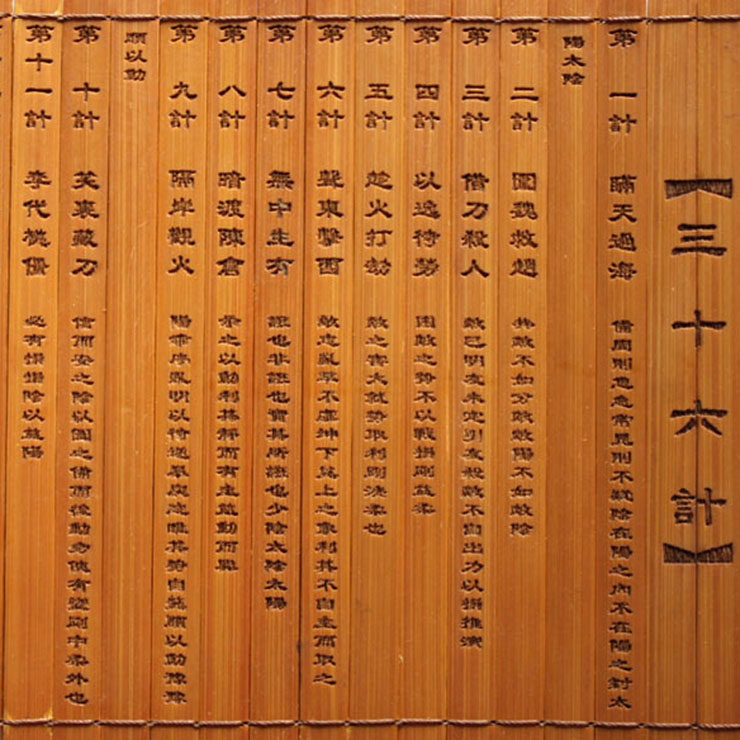 【三十六計】
第一計 瞞天過海 備周則意怠常見則不疑陰在陽之內不在陽之對太
陽太陰
第二計 圍魏救趙 共敵不如分敵敵陽不如敵陰
第三計 借刀殺人 敵已明友未定引友殺敵不自出力以損推演
第四計 以逸待勞 困敵之勢不以戰損剛益柔
第五計 趁火打劫 敵之害大就勢取利剛決柔也
第六計 聲東擊西 敵志亂萃不虞坤下兌上之象利其不自主而取之
第七計 無中生有 誑也非誑也實其所誑也少陰太陰太陽
第八計 暗渡陳倉 示之以動利其靜而有主益動而巽
第九計 隔岸觀火 陽乖序亂明以待逆暴戾恣睢其勢自斃順以動豫豫
順以動
第十計 笑裏藏刀 信而安之陰以圖之備而後動勿使有變剛中柔外也
第十一計 李代桃僵 必有損損陰以益陽